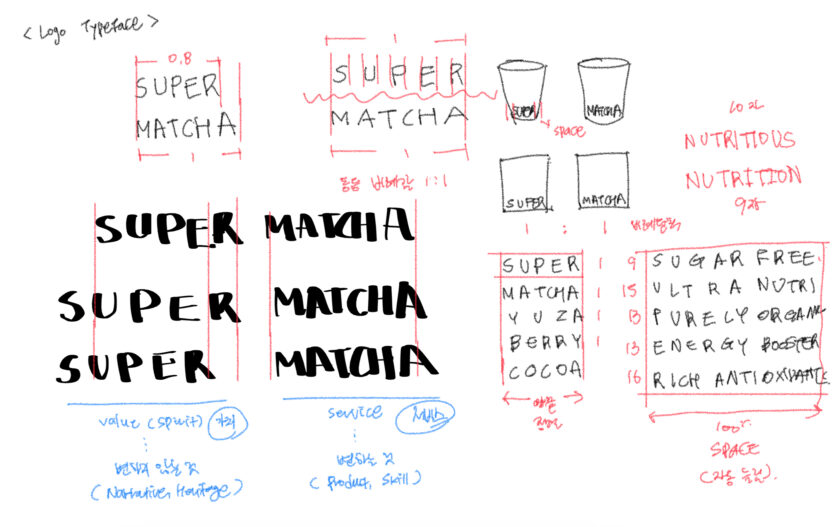 < Logo Typeface >
0.8
SUPER
MATCHA
1
1
SUPER
MATCHA
동등 비례감 1:1
SUPER
MATCHA
space
SUPER
MATCHA
1 : 1
10자
NUTRITIOUS
NUTRITION
9자
SUPER MATCHA
SUPER MATCHA
SUPER MATCHA
SUPER 1
MATCHA 1
YUZA 1
BERRY 1
COCOA
9 SUGAR FREE.
15 ULTRA NUTRI
13 PURELY ORGANIC
13 ENERGY BOOSTER
16 RICH ANTIOXIDANTS
100%
SPACE
value (spirit) 가치
변하지 않는 것
(Narrative, Heritage)
service 서비스
변하는 것
(Product, Skill)